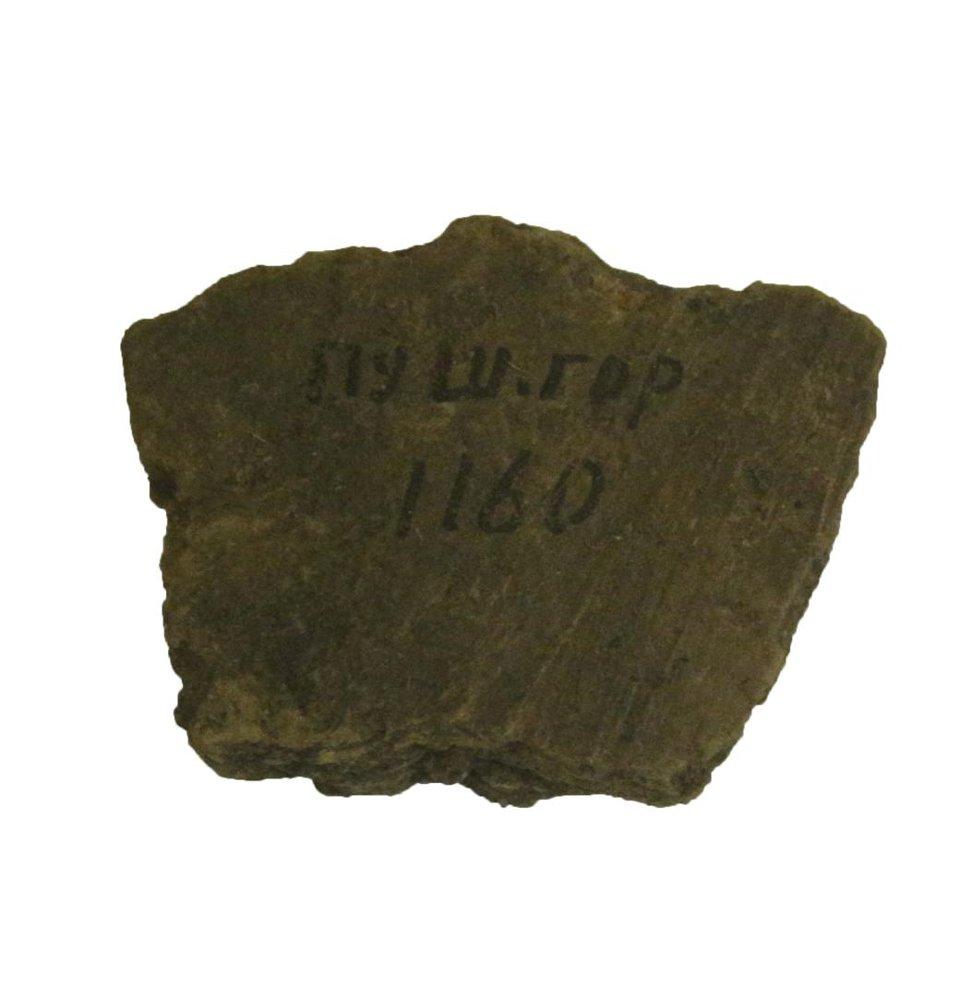 Пуш.гор
1160